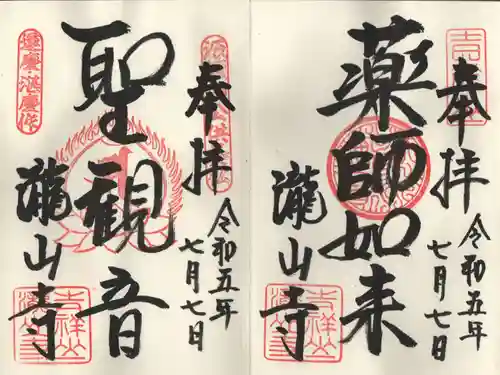 奉拝
令和五年
七月七日
薬師如来
瀧山寺
奉拝
令和五年
七月七日
聖観音
瀧山寺
運慶・湛慶作
吉祥山
吉祥山